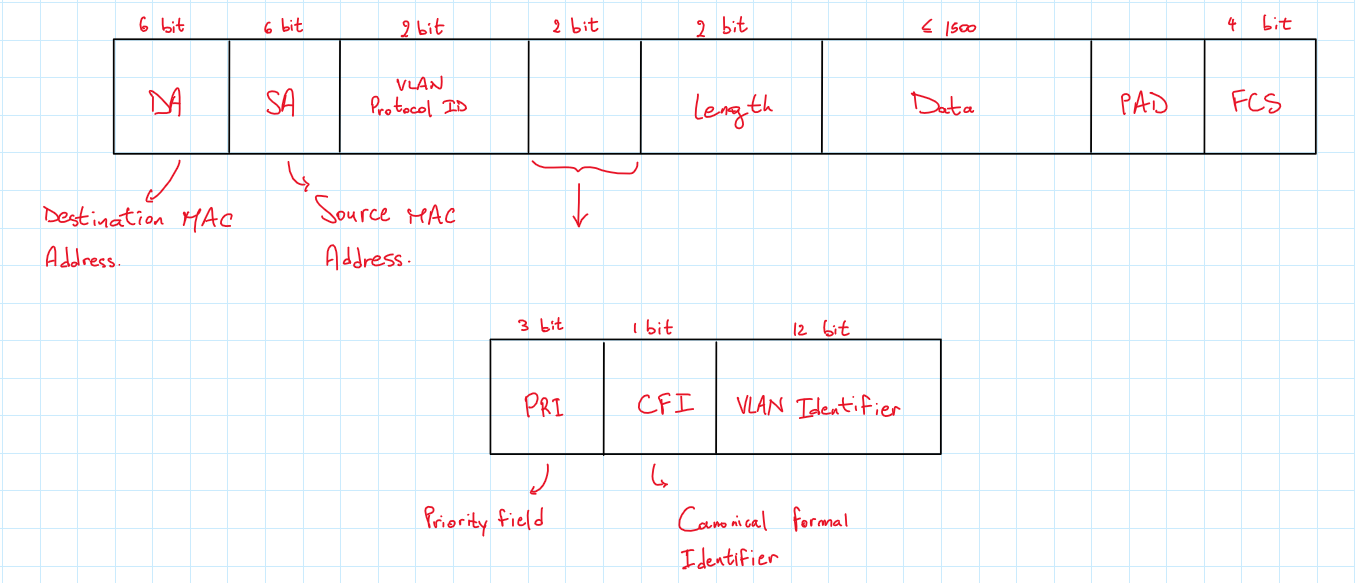 6 bit 6 bit 2 bit 2 bit 2 bit ≤ 1500 4 bit
DA SA VLAN Protocol ID Length Data PAD FCS
Destination MAC
Address.
Source MAC
Address.
3 bit 1 bit 12 bit
PRI CFI VLAN Identifier
Priority field
Canonical formal
Identifier